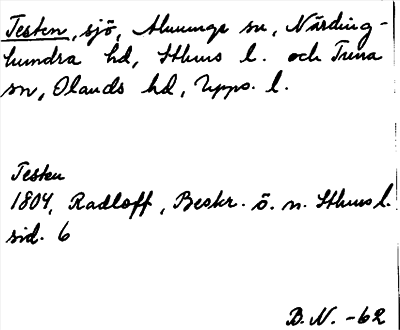 Testen, sjö, Almunge sn, Närding-
hundra hd, Sthms l. och Tuna
sn, Olands hd, Upps. l.
Testen
1804, Radloff, Beskr. ö. n. Sthms l.
sid. 6
B.N. -62